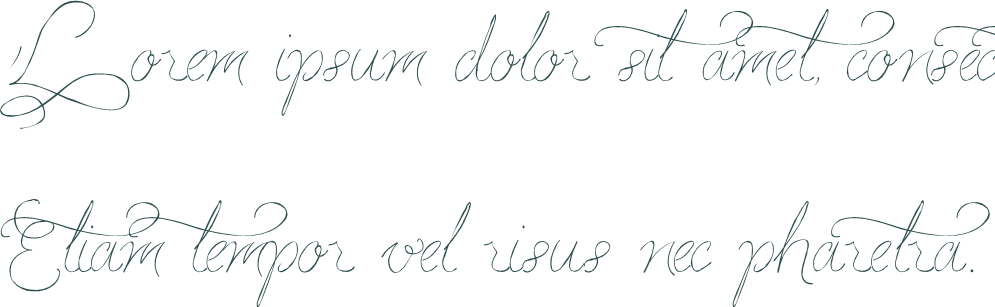 Lorem ipsum dolor sit amet, consec
Etiam tempor vel risus nec pharetra.